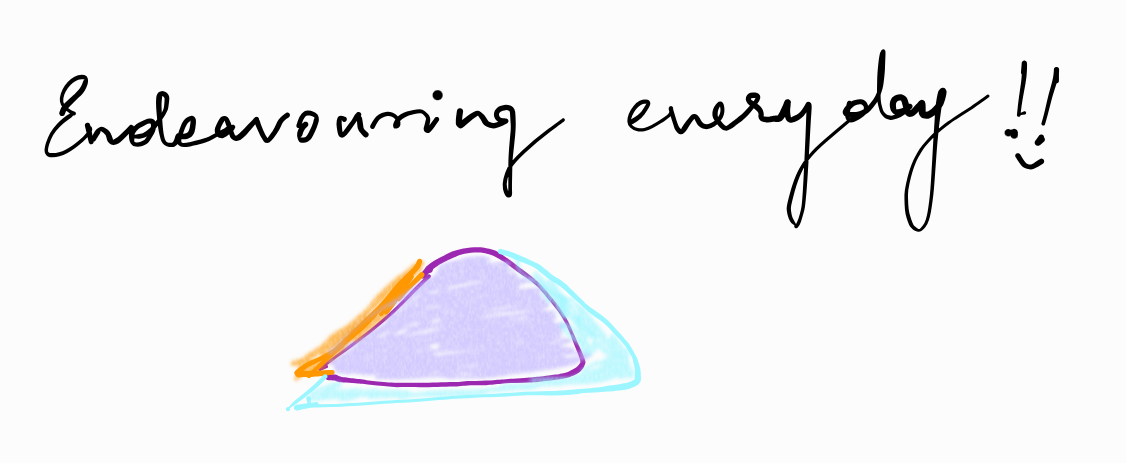 Endeavouring everyday !!